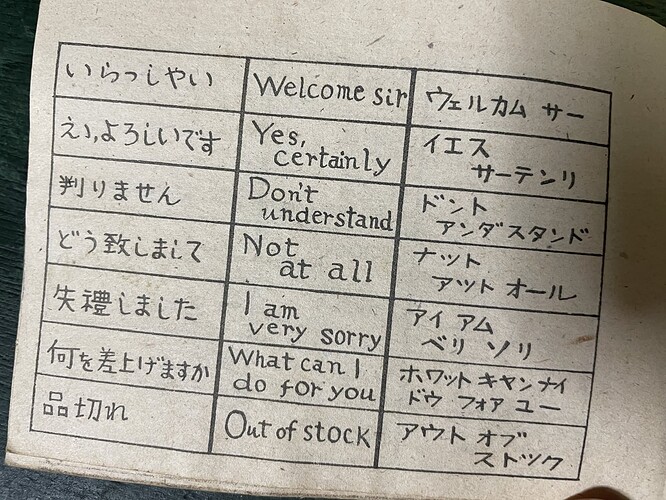 いらっしやい
Welcome sir
ウェルカム サー
えゝ,よろしいです
Yes,
certainly
イエス
サーテンリ
判りません
Don't
understand
ドント
アンダスタンド
どう致しまして
Not
at all
ナット
アット オール
失禮しました
I am
very sorry
アイ アム
ベリ ソリ
何を差上げますか
What can I
do for you
ホワット キヤン ナイ
ドウ フォア ユー
品切れ
Out of stock
アウト オブ
ストック